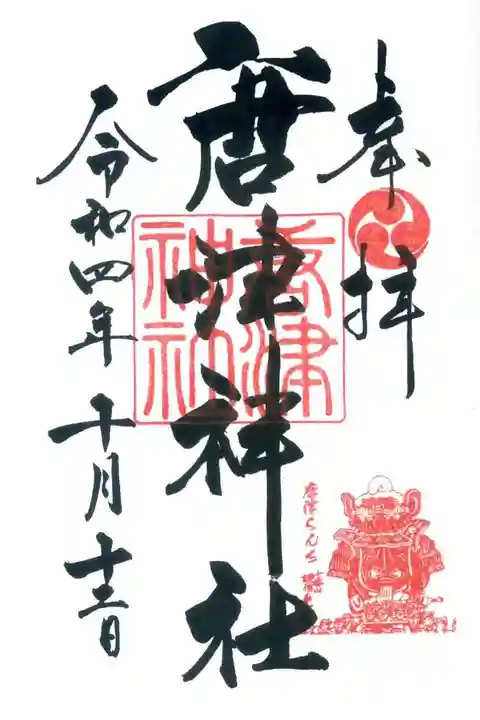 奉拝
唐津神社
唐津神社
唐津くんち
令和四年十月十三日